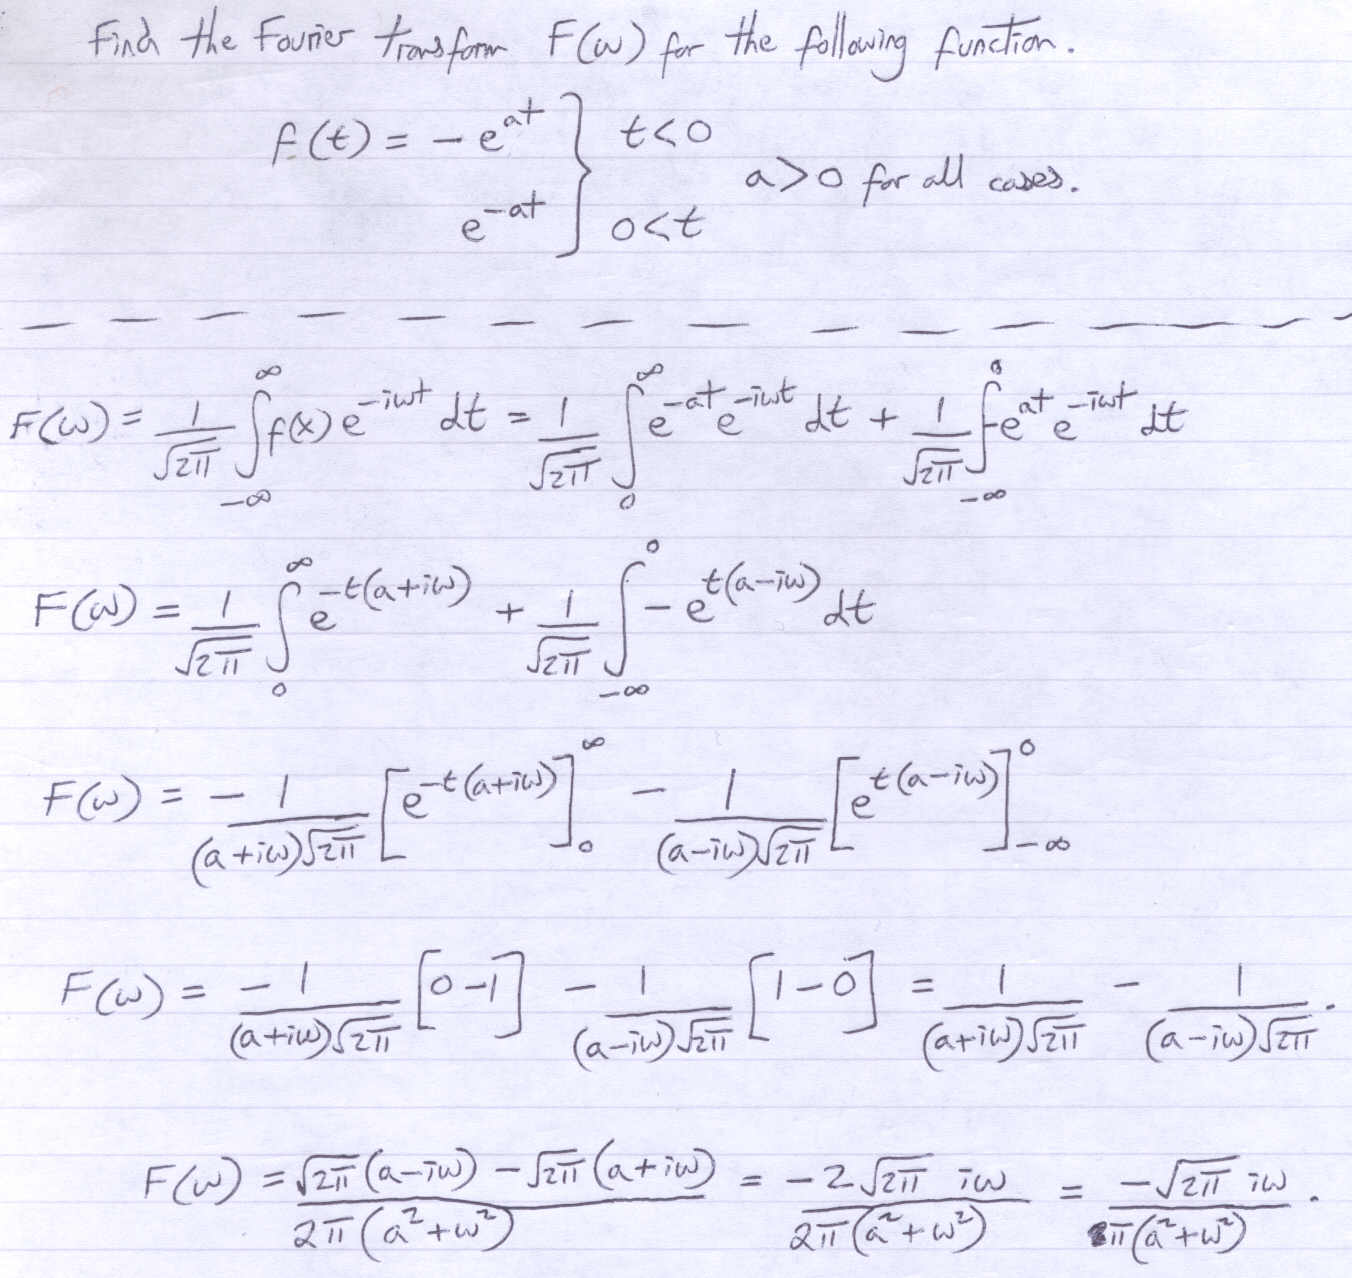 Find the Fourier transform F(ω) for the following function.
f(t) = - e^{at} } t<0
a>0 for all cases.
e^{-at} } 0<t
F(ω) = \frac{1}{\sqrt{2π}} \int_{-∞}^{∞} f(x) e^{-iωt} dt = \frac{1}{\sqrt{2π}} \int_{0}^{∞} e^{-at} e^{-iωt} dt + \frac{1}{\sqrt{2π}} \int_{-∞}^{0} -e^{at} e^{-iωt} dt
F(ω) = \frac{1}{\sqrt{2π}} \int_{0}^{∞} e^{-t(a+iω)} + \frac{1}{\sqrt{2π}} \int_{-∞}^{0} - e^{t(a-iω)} dt
F(ω) = \frac{-1}{(a+iω)\sqrt{2π}} [e^{-t(a+iω)}]_{0}^{∞} - \frac{1}{(a-iω)\sqrt{2π}} [e^{t(a-iω)}]_{-∞}^{0}
F(ω) = \frac{-1}{(a+iω)\sqrt{2π}} [0-1] - \frac{1}{(a-iω)\sqrt{2π}} [1-0] = \frac{1}{(a+iω)\sqrt{2π}} - \frac{1}{(a-iω)\sqrt{2π}}.
F(ω) = \frac{\sqrt{2π}(a-iω) - \sqrt{2π}(a+iω)}{2π(a^2+ω^2)} = \frac{-2\sqrt{2π} iω}{2π(a^2+ω^2)} = \frac{-\sqrt{2π} iω}{π(a^2+ω^2)}.